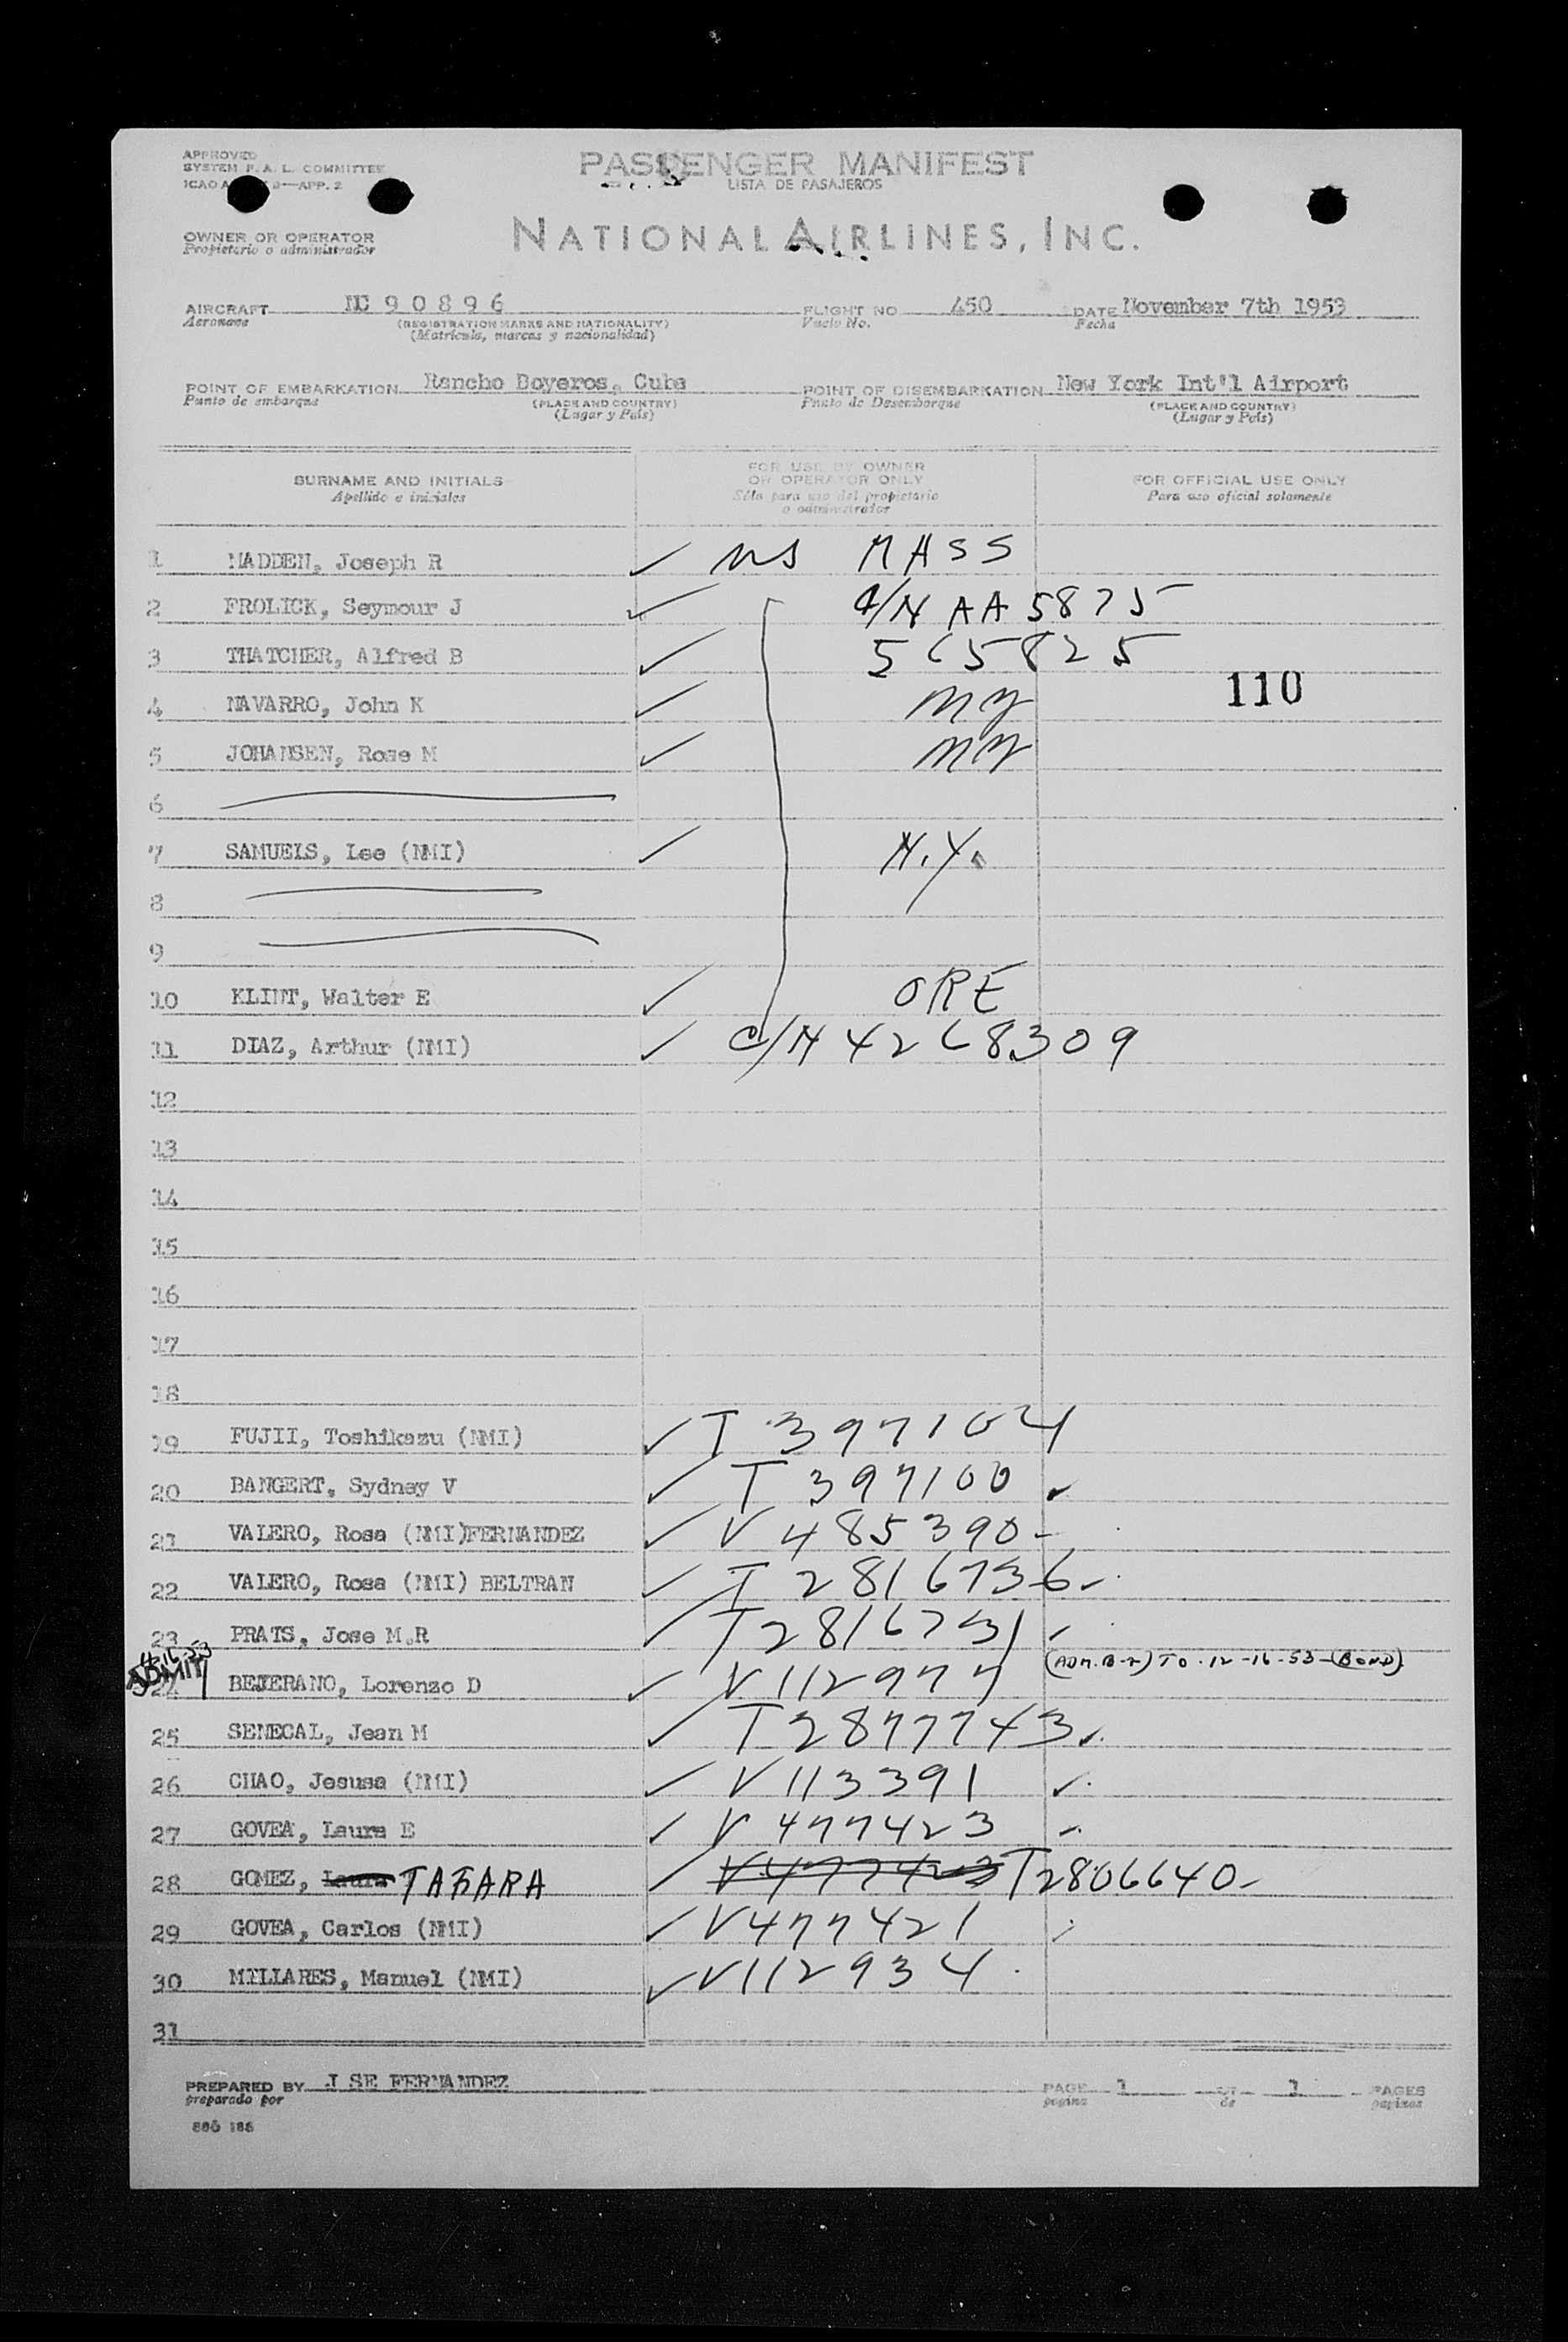 APPROVED
SYSTEM F. A. L. COMMITTEE
ICAO 9—APP. 2
PASSENGER MANIFEST
LISTA DE PASAJEROS
OWNER OR OPERATOR
Propietario o administrador
NATIONAL AIRLINES, INC.
AIRCRAFT NC 90896 FLIGHT NO 450 DATE November 7th 1953
Aeronave (REGISTRATION MARKS AND NATIONALITY) Vuelo No. Fecha
(Matrícula, marcas y nacionalidad)
POINT OF EMBARKATION Rancho Boyeros, Cuba POINT OF DISEMBARKATION New York Int'l Airport
Punto de embarque (PLACE AND COUNTRY) Punto de Desembarque (PLACE AND COUNTRY)
(Lugar y País) (Lugar y País)
SURNAME AND INITIALS FOR USE BY OWNER OR OPERATOR ONLY FOR OFFICIAL USE ONLY
Apellido e iniciales Sólo para uso del propietario o administrador Para uso oficial solamente
1 MADDEN, Joseph R ✓ US MASS
2 FROLICK, Seymour J ✓ C/N AA 5875
3 THATCHER, Alfred B ✓ 565825
110
4 NAVARRO, John K ✓ NY
5 JOHANSEN, Rose M ✓ NY
6
7 SAMUELS, Lee (NMI) ✓ N.Y.
8
9
10 KLINT, Walter E ✓ ORE
11 DIAZ, Arthur (NMI) ✓ C/N 4268309
12
13
14
15
16
17
18
19 FUJII, Toshikazu (NMI) ✓ T 397104
20 BANGERT, Sydney V ✓ T 397100 ✓
21 VALERO, Rosa (NMI)FERNANDEZ ✓ V 485390-
22 VALERO, Rosa (NMI) BELTRAN ✓ T 2816736 ✓
23 PRATS, Jose M.R ✓ T2816731 ✓
ADMIT (ADM. B-2) TO 12-16-53 (BOND)
24 BEJERANO, Lorenzo D ✓ V 112977
25 SENECAL, Jean M ✓ T2877743 ✓
26 CHAO, Jesusa (NMI) ✓ V 113391 ✓
27 GOVEA, Laura E ✓ V 477423 ✓
28 GOMEZ, Laura TABARA ✓ V 477423 T2806640-
29 GOVEA, Carlos (NMI) ✓ V477421 ✓
30 MILLARES, Manuel (NMI) ✓ V112934
31
PREPARED BY J SE FERNANDEZ PAGE 1 OF 1 PAGES
preparado por pagina de paginas